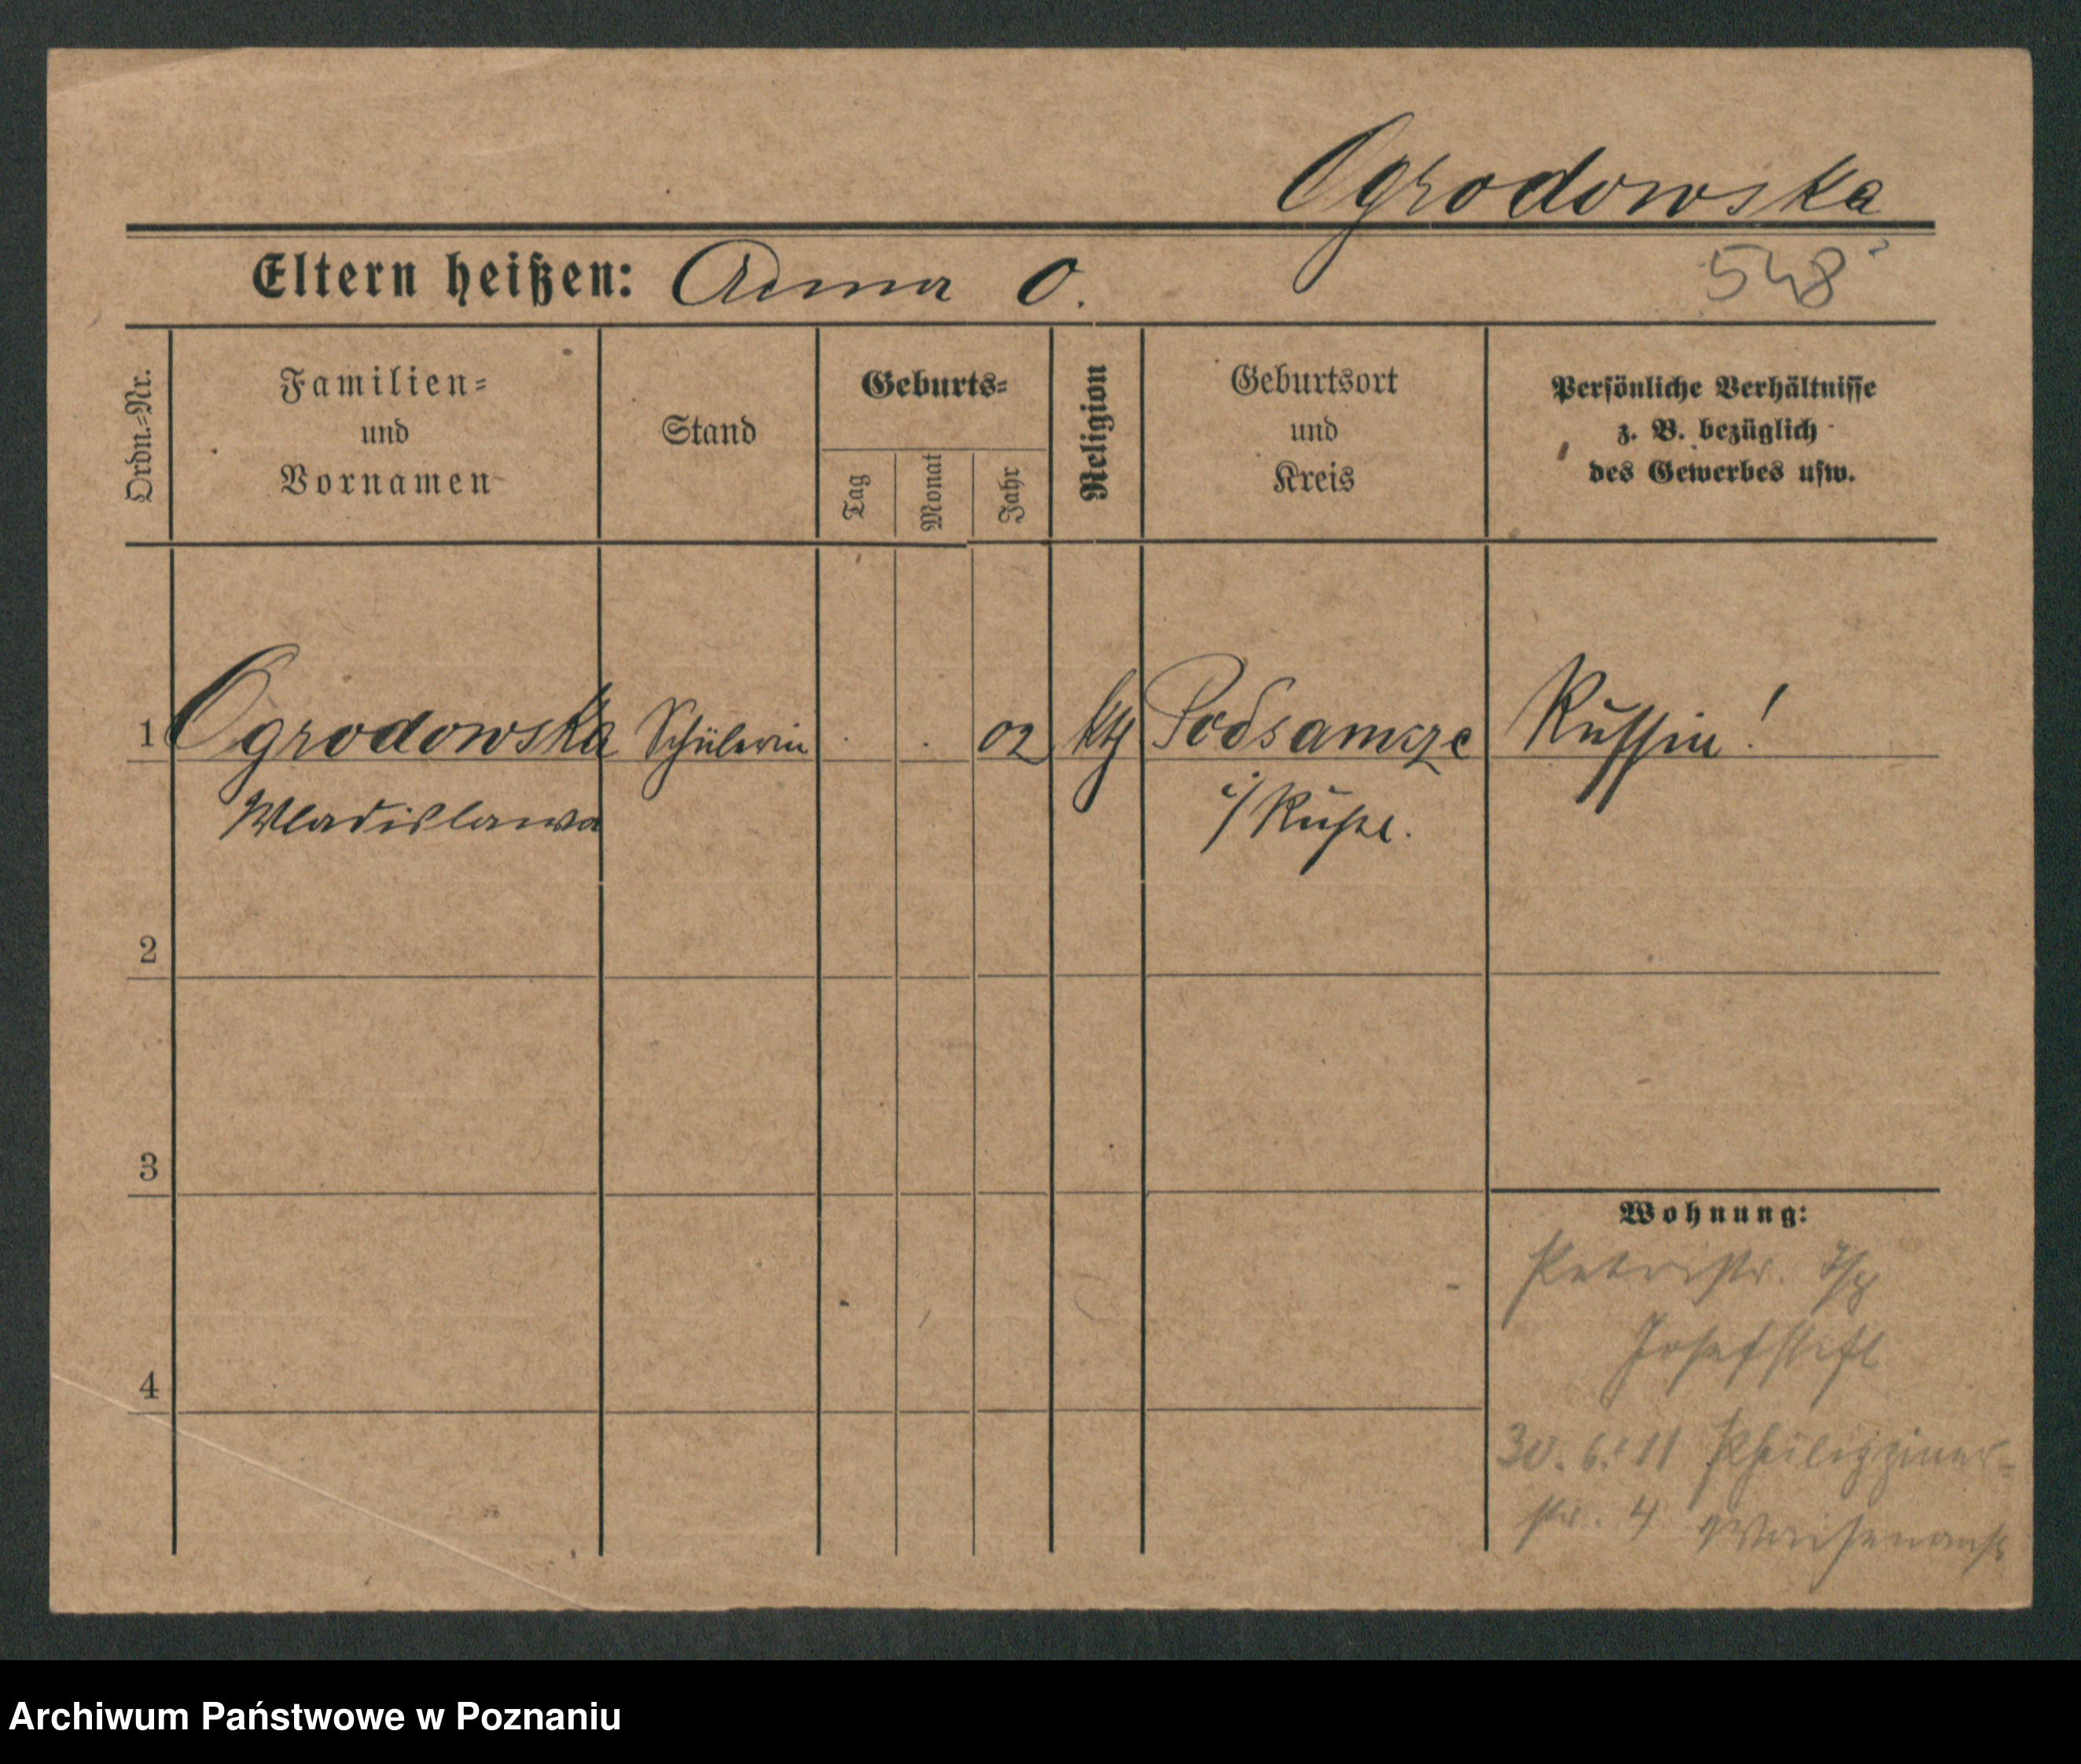 Ogrodowska
548
Eltern heißen: Anna O.
Ordn.=Nr.
Familien=
und
Vornamen
Stand
Geburts=
Tag
Monat
Jahr
Religion
Geburtsort
und
Kreis
Persönliche Verhältnisse
z. B. bezüglich
des Gewerbes usw.
1 Ogrodowska Schülerin . . 02 kth Podsamcze Russin!
Wladislawa i/Russl.
2
3
Wohnung:
Petristr.
Josefstift
4
30. 6. 11 Philippiner=
str. 4 Waisenanst
Archiwum Państwowe w Poznaniu